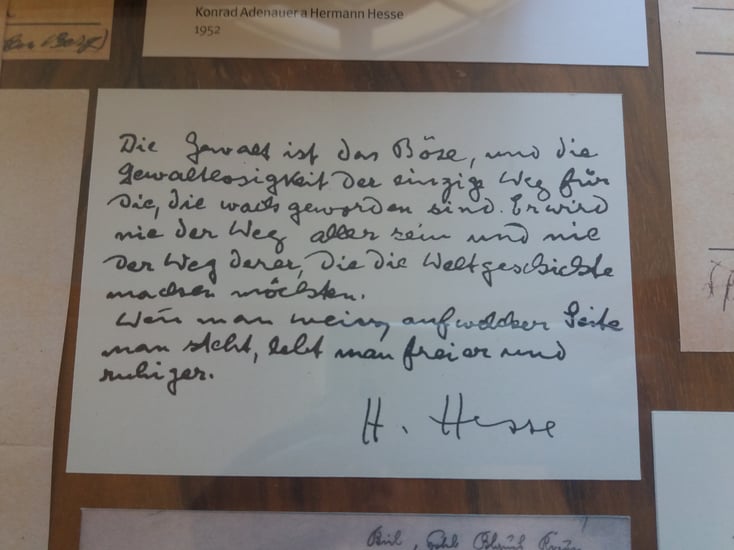 Konrad Adenauer a Hermann Hesse
1952
Die Gewalt ist das Böse, und die
Gewaltlosigkeit der einzige Weg für
die, die wach geworden sind. Er wird
nie der Weg aller sein und nie
der Weg derer, die die Weltgeschichte
machen möchten.
Wenn man weiss, auf welcher Seite
man steht, lebt man freier und
ruhiger.
H. Hesse